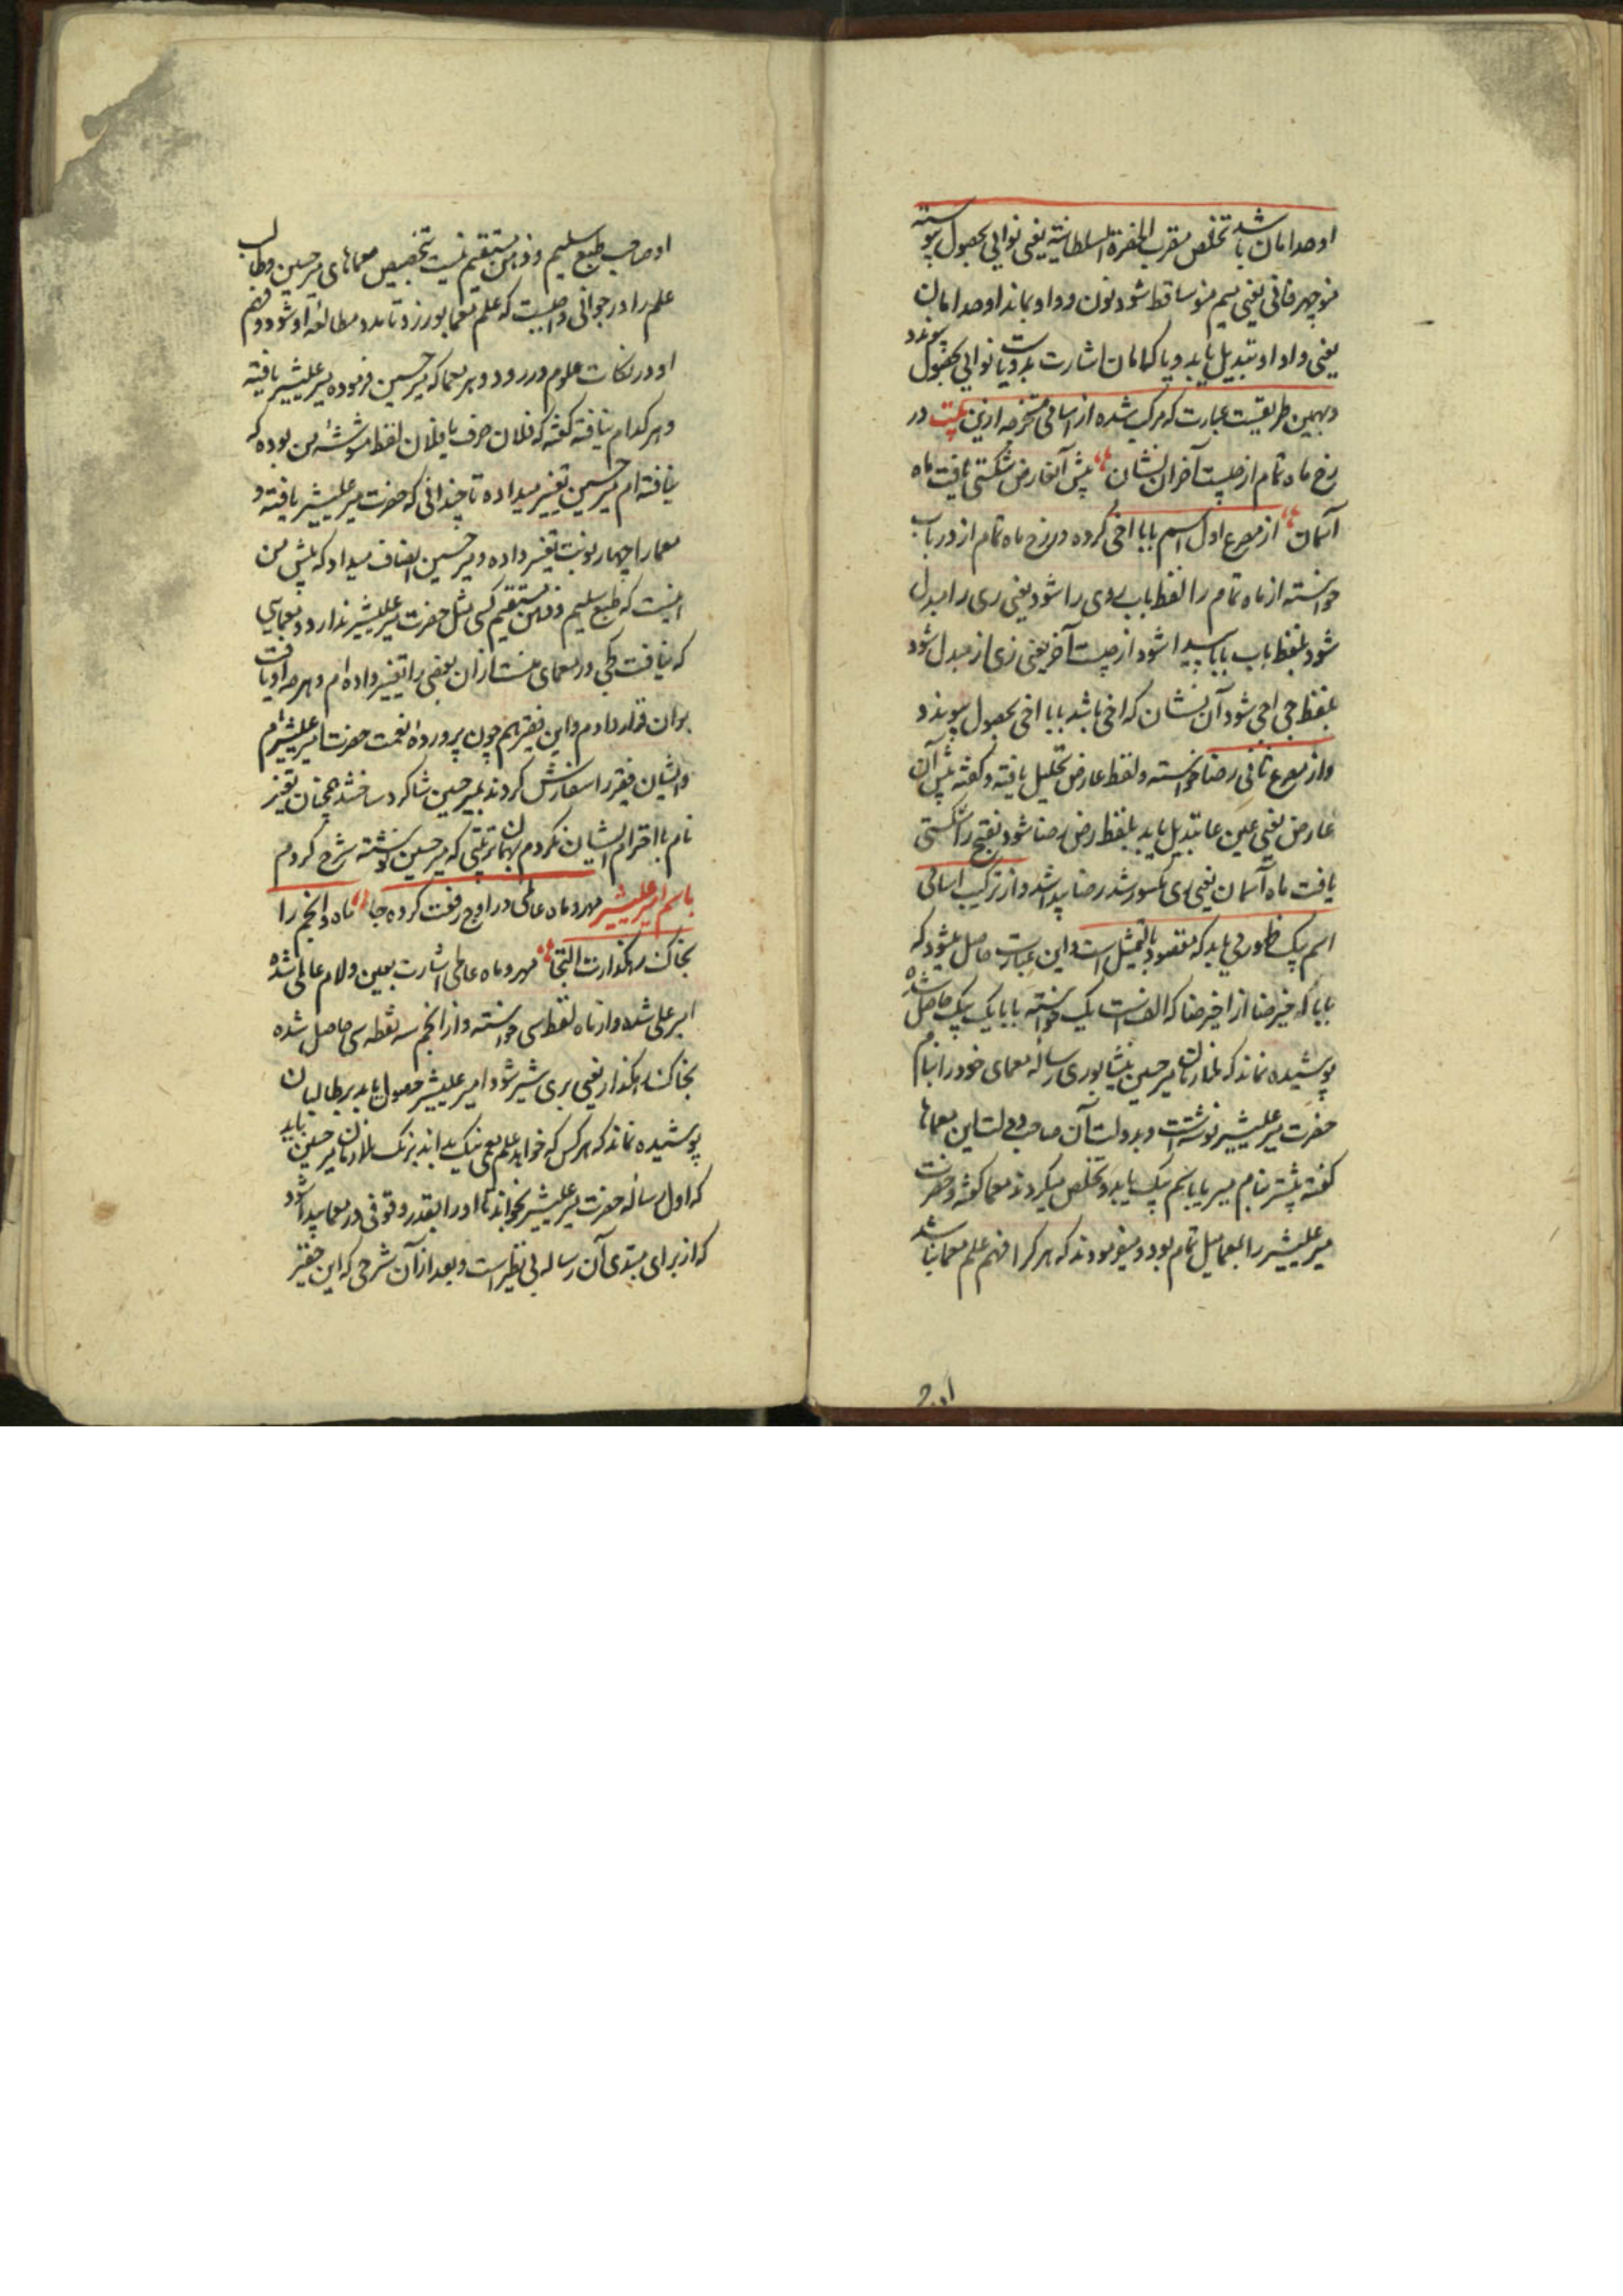 اوحد امان باشد تخلص مقرب الحضرة السلطانیة یعنی نوایی بحصول پیوسته
منوچهر فانی یعنی میم منو ساقط شود نون و واو بماند اوحد امان
یعنی واو او تبدیل یابد و یا کامان اشارت بدوست یا نوایی بحصول پیوندد
و بهمین طریقیست عبارت که مرکب شده از اسامی مستخرجه ازین بیت در
رخ ماه تمام از چیست آخر آن نشان پیش آن عارض شکستی یافت ماه
آسمان از مصرع اول اسم بابا اخی کرده و رخ ماه تمام از در باب
خواسته از ماه تمام را لفظ باب روی را شود یعنی ری را مبدل
شود بلفظ باب بابا پیدا شود از چیست آخر یعنی زی از مبدل شود
بلفظ خی اخی شود آن نشان که اخی باشد بابا اخی بحصول پیوندد
و از مصرع ثانی رضا خواسته و لفظ عارض تحلیل یافته و گفته پیش آن
عارض یعنی عین عا تبدیل یابد بلفظ رض رضا شود بفتح را شکستی
یافت ماه آسمان یعنی ری مکسور شد رضا پیدا شد و از ترکیب اسامی
اسم پیک ظهور می یابد که مقصود بالتمثیل است و این عبارت حاصل میشود که
بابا که خیر رضا از اخیر رضا که الف است یک خواسته بابا یک پیک حاصل شده
پوشیده نماند که ملازمان میر حسین نیشابوری رساله معمای خود را بنام
حضرت میر علیشیر نوشته است و بدولت آن صاحب دولت این معماها
گفته پیشتر بنام میر بابا بیک تخلص میکردند معما گفته و حضرت
میر علیشیر را بمعما میل تمام بود و میفرمودند که هر کرا فهم علم معما نباشد
او صاحب طبع سلیم و ذهن مستقیم نیست بتخصیص معماهای میر حسین و طالب
علم را در جوانی واجبست که علم معما بورزد تا مدد مطالعه او شود و فهم
او در نکات علوم در رود و هر معما که میر حسین فرموده میر علیشیر یافته
و هر کدام نیافته گفته که فلان حرف یا فلان لفظ مشوش من بوده که
نیافته ام میر حسین تغییر میداده تا چندانی که حضرت میر علیشیر یافته و
معما را چهار نوبت تغییر داده و میر حسین انصاف میداد که پیش من
اینست که طبع سلیم و ذهن مستقیم کسی مثل حضرت میر علیشیر ندارد و معمایی
که نیافت در معمای منست ازان بعضی را تغییر داده ام و هر چه او یافت
بران قرار دادم و این فقیر هم چون پرورده نعمت حضرت میر علیشیرام
و ایشان فقیر را سفارش کردند بمیر حسین شاگرد ساخته شد همچنان تغیر
نام با احترام ایشان نکردم بهمان ترتیبی که میر حسین نوشته شرح کردم
باسم امیر علیشیر مهر و ماه عالمی در اوج رفعت کرده جا ماه و انجم را
بخاک رهگذارت التجا مهر و ماه عالمی اشارت بعین و لام عالمی شده
امیر علی شده و از ماه لفظ سی خواسته و از انجم سه نقطه سی حاصل شده
بخاک رهگذار یعنی بری شیر شود امیر علیشیر حصول یابد بر طالبان
پوشیده نماند که هر کس که خواهد علم معمی نیک بداند بزبان ملازمان میر حسین باید
که اول رساله حضرت میر علیشیر بخواند تا او را بقدر وقوفی در معما پیدا شود
که از برای مبتدی آن رساله بی نظیر است و بعد از آن شرحی که این حقیر
او صاحب